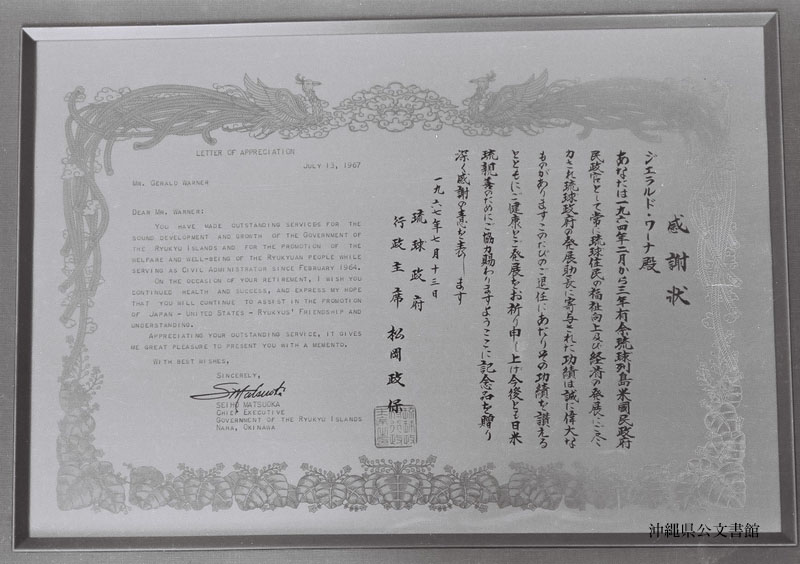 感謝状
ジェラルド・ワーナ殿
あなたは一九六四年二月から三年有余琉球列島米國民政府
民政官として常に琉球住民の福祉向上及び経済の発展に尽
力され琉球政府の発展助長に寄与された功績は誠に偉大な
ものがありますこのたびのご退任にあたりその功績を讃える
とともにご健康とご発展をお祈り申し上げ今後とも日米
琉親善のためにご協力賜わりますようここに記念品を贈り
深く感謝の意を表します
一九六七年七月十三日
琉球政府
行政主席 松岡政保
LETTER OF APPRECIATION
JULY 13, 1967
MR. GERALD WARNER
DEAR MR. WARNER:
YOU HAVE MADE OUTSTANDING SERVICES FOR THE
SOUND DEVELOPMENT AND GROWTH OF THE GOVERNMENT OF
THE RYUKYU ISLANDS AND FOR THE PROMOTION OF THE
WELFARE AND WELL-BEING OF THE RYUKYUAN PEOPLE WHILE
SERVING AS CIVIL ADMINISTRATOR SINCE FEBRUARY 1964.
ON THE OCCASION OF YOUR RETIREMENT, I WISH YOU
CONTINUED HEALTH AND SUCCESS, AND EXPRESS MY HOPE
THAT YOU WILL CONTINUE TO ASSIST IN THE PROMOTION
OF JAPAN - UNITED STATES - RYUKYUS' FRIENDSHIP AND
UNDERSTANDING.
APPRECIATING YOUR OUTSTANDING SERVICE, IT GIVES
ME GREAT PLEASURE TO PRESENT YOU WITH A MEMENTO.
WITH BEST WISHES,
SINCERELY,
SMatsuoka
SEIHO MATSUOKA
CHIEF EXECUTIVE
GOVERNMENT OF THE RYUKYU ISLANDS
NAHA, OKINAWA
沖縄県公文書館